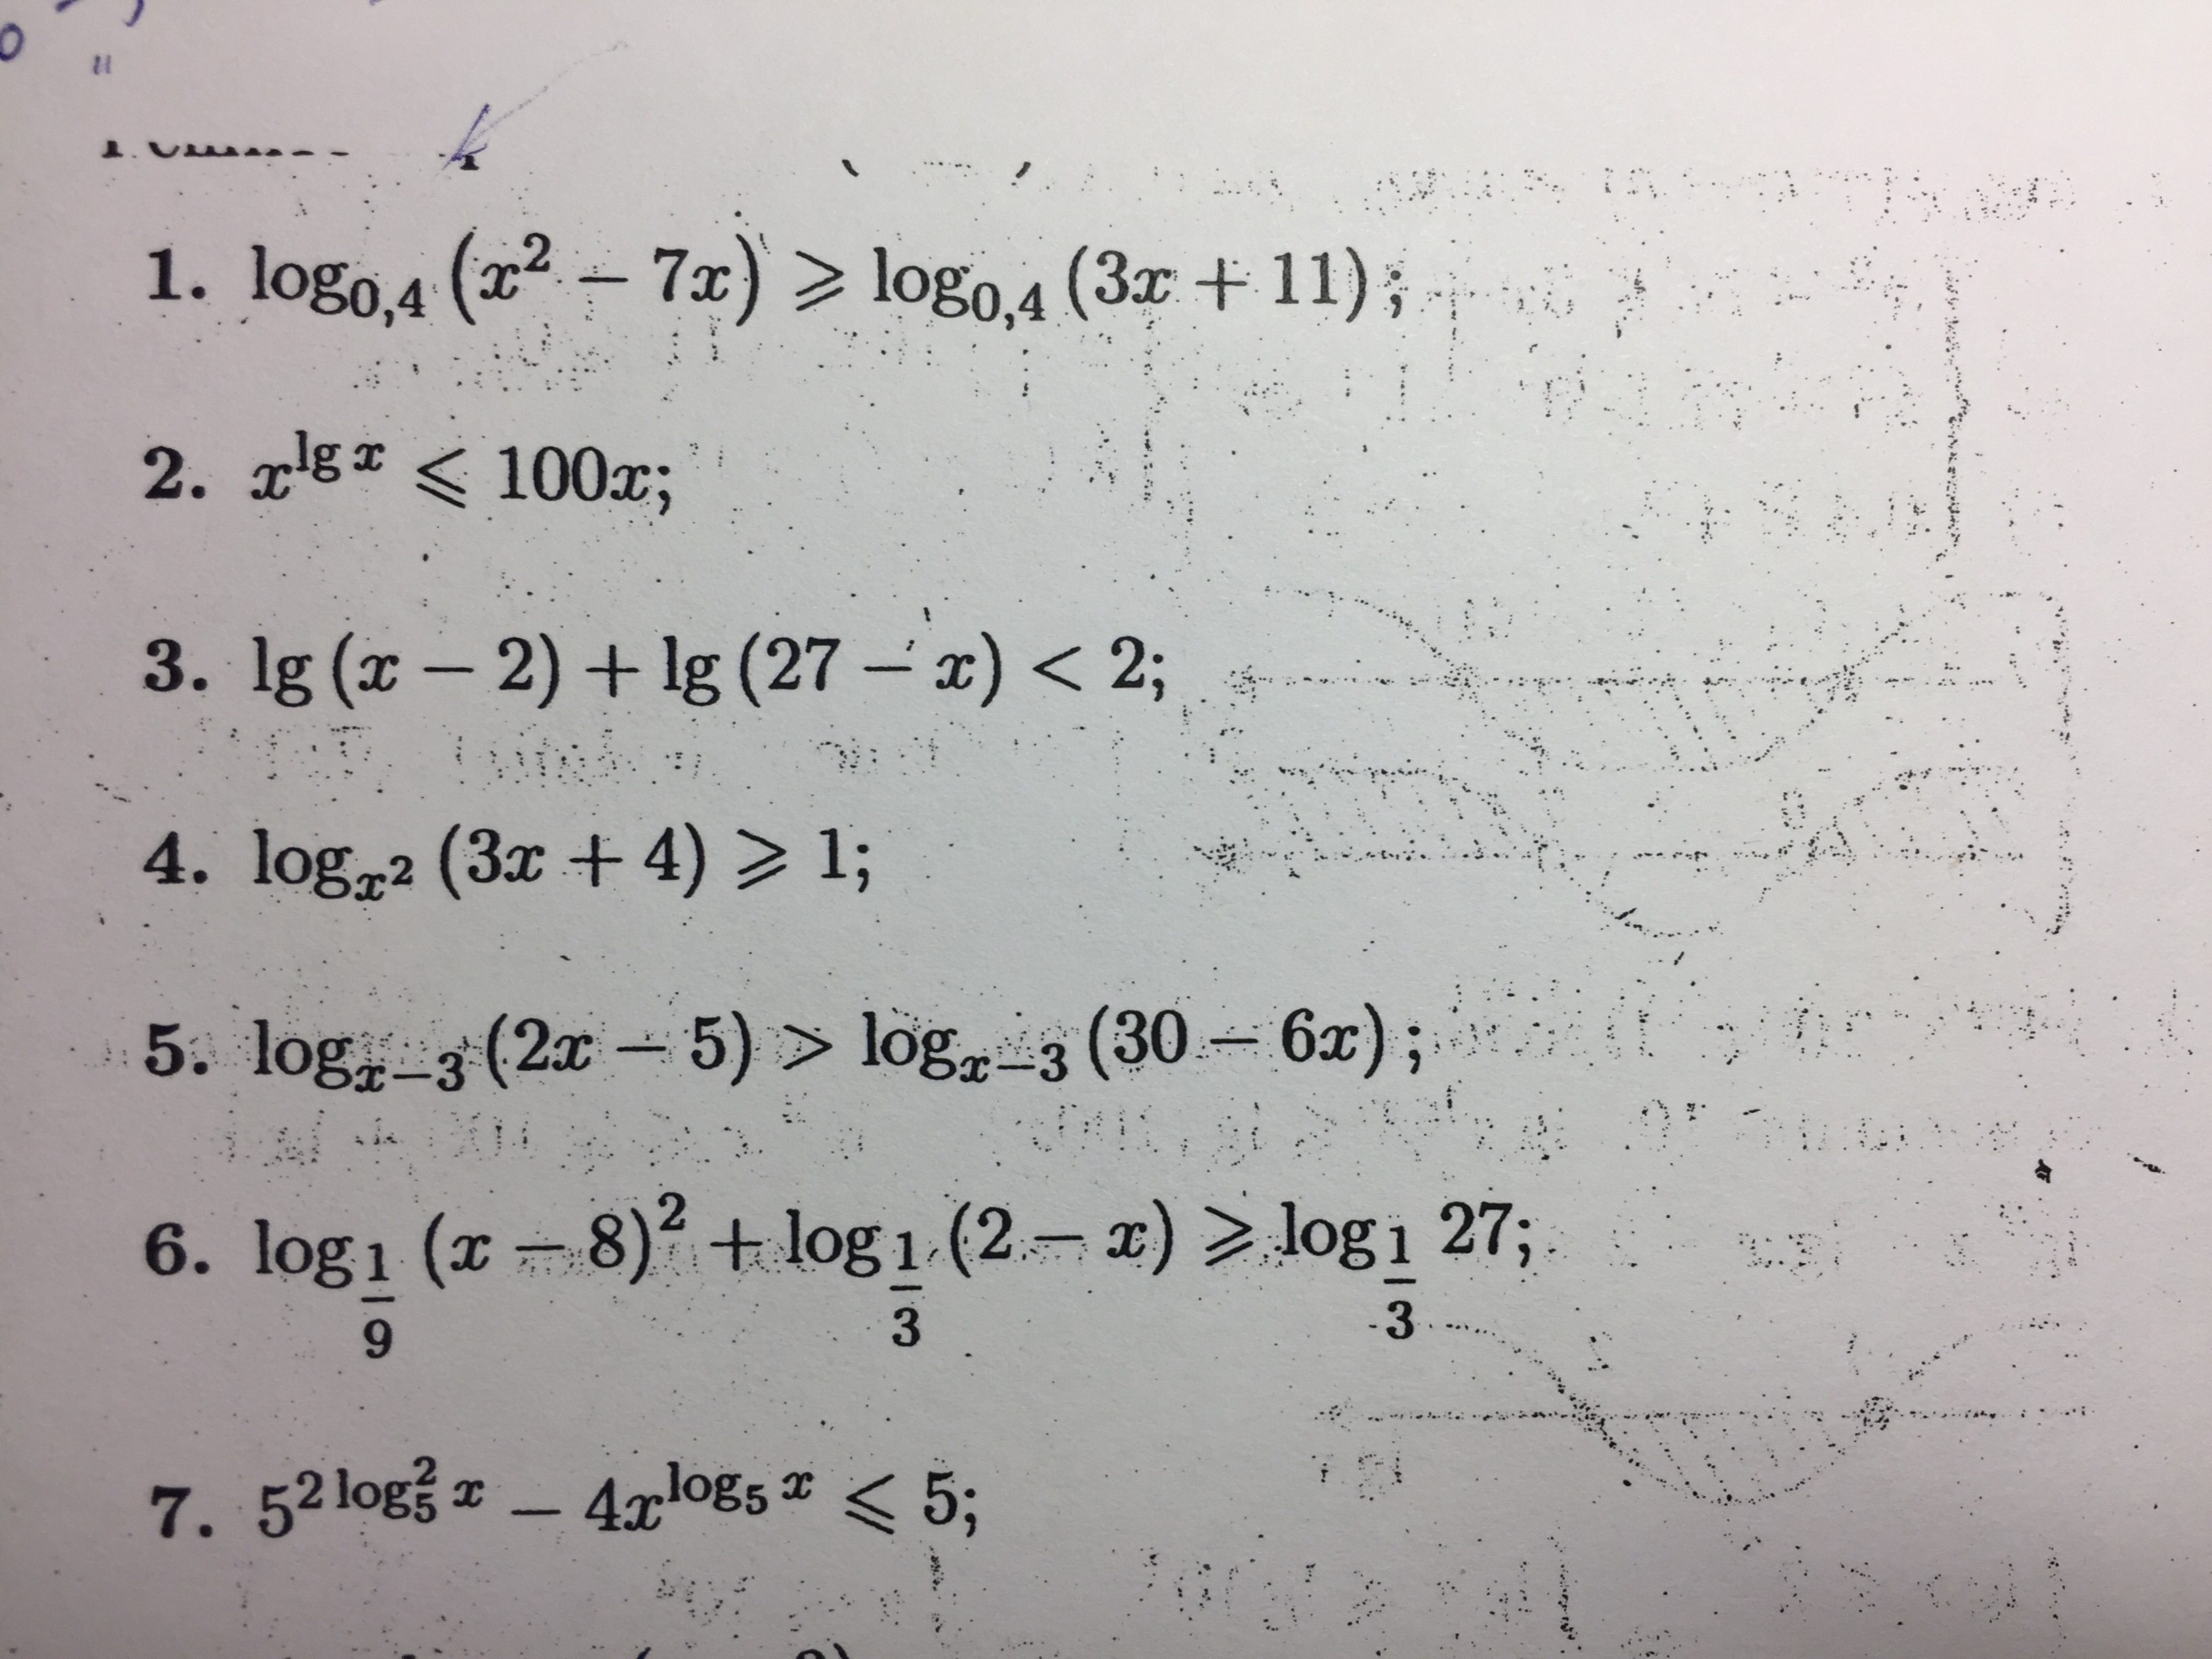 1. log₀,₄ (x² − 7x) ⩾ log₀,₄ (3x + 11);
2. x^(lg x) ⩽ 100x;
3. lg (x − 2) + lg (27 − x) < 2;
4. log_(x²) (3x + 4) ⩾ 1;
5. log_(x−3) (2x − 5) > log_(x−3) (30 − 6x);
6. log_(1/9) (x − 8)² + log_(1/3) (2 − x) ⩾ log_(1/3) 27;
7. 5^(2 log₅² x) − 4x^(log₅ x) ⩽ 5;